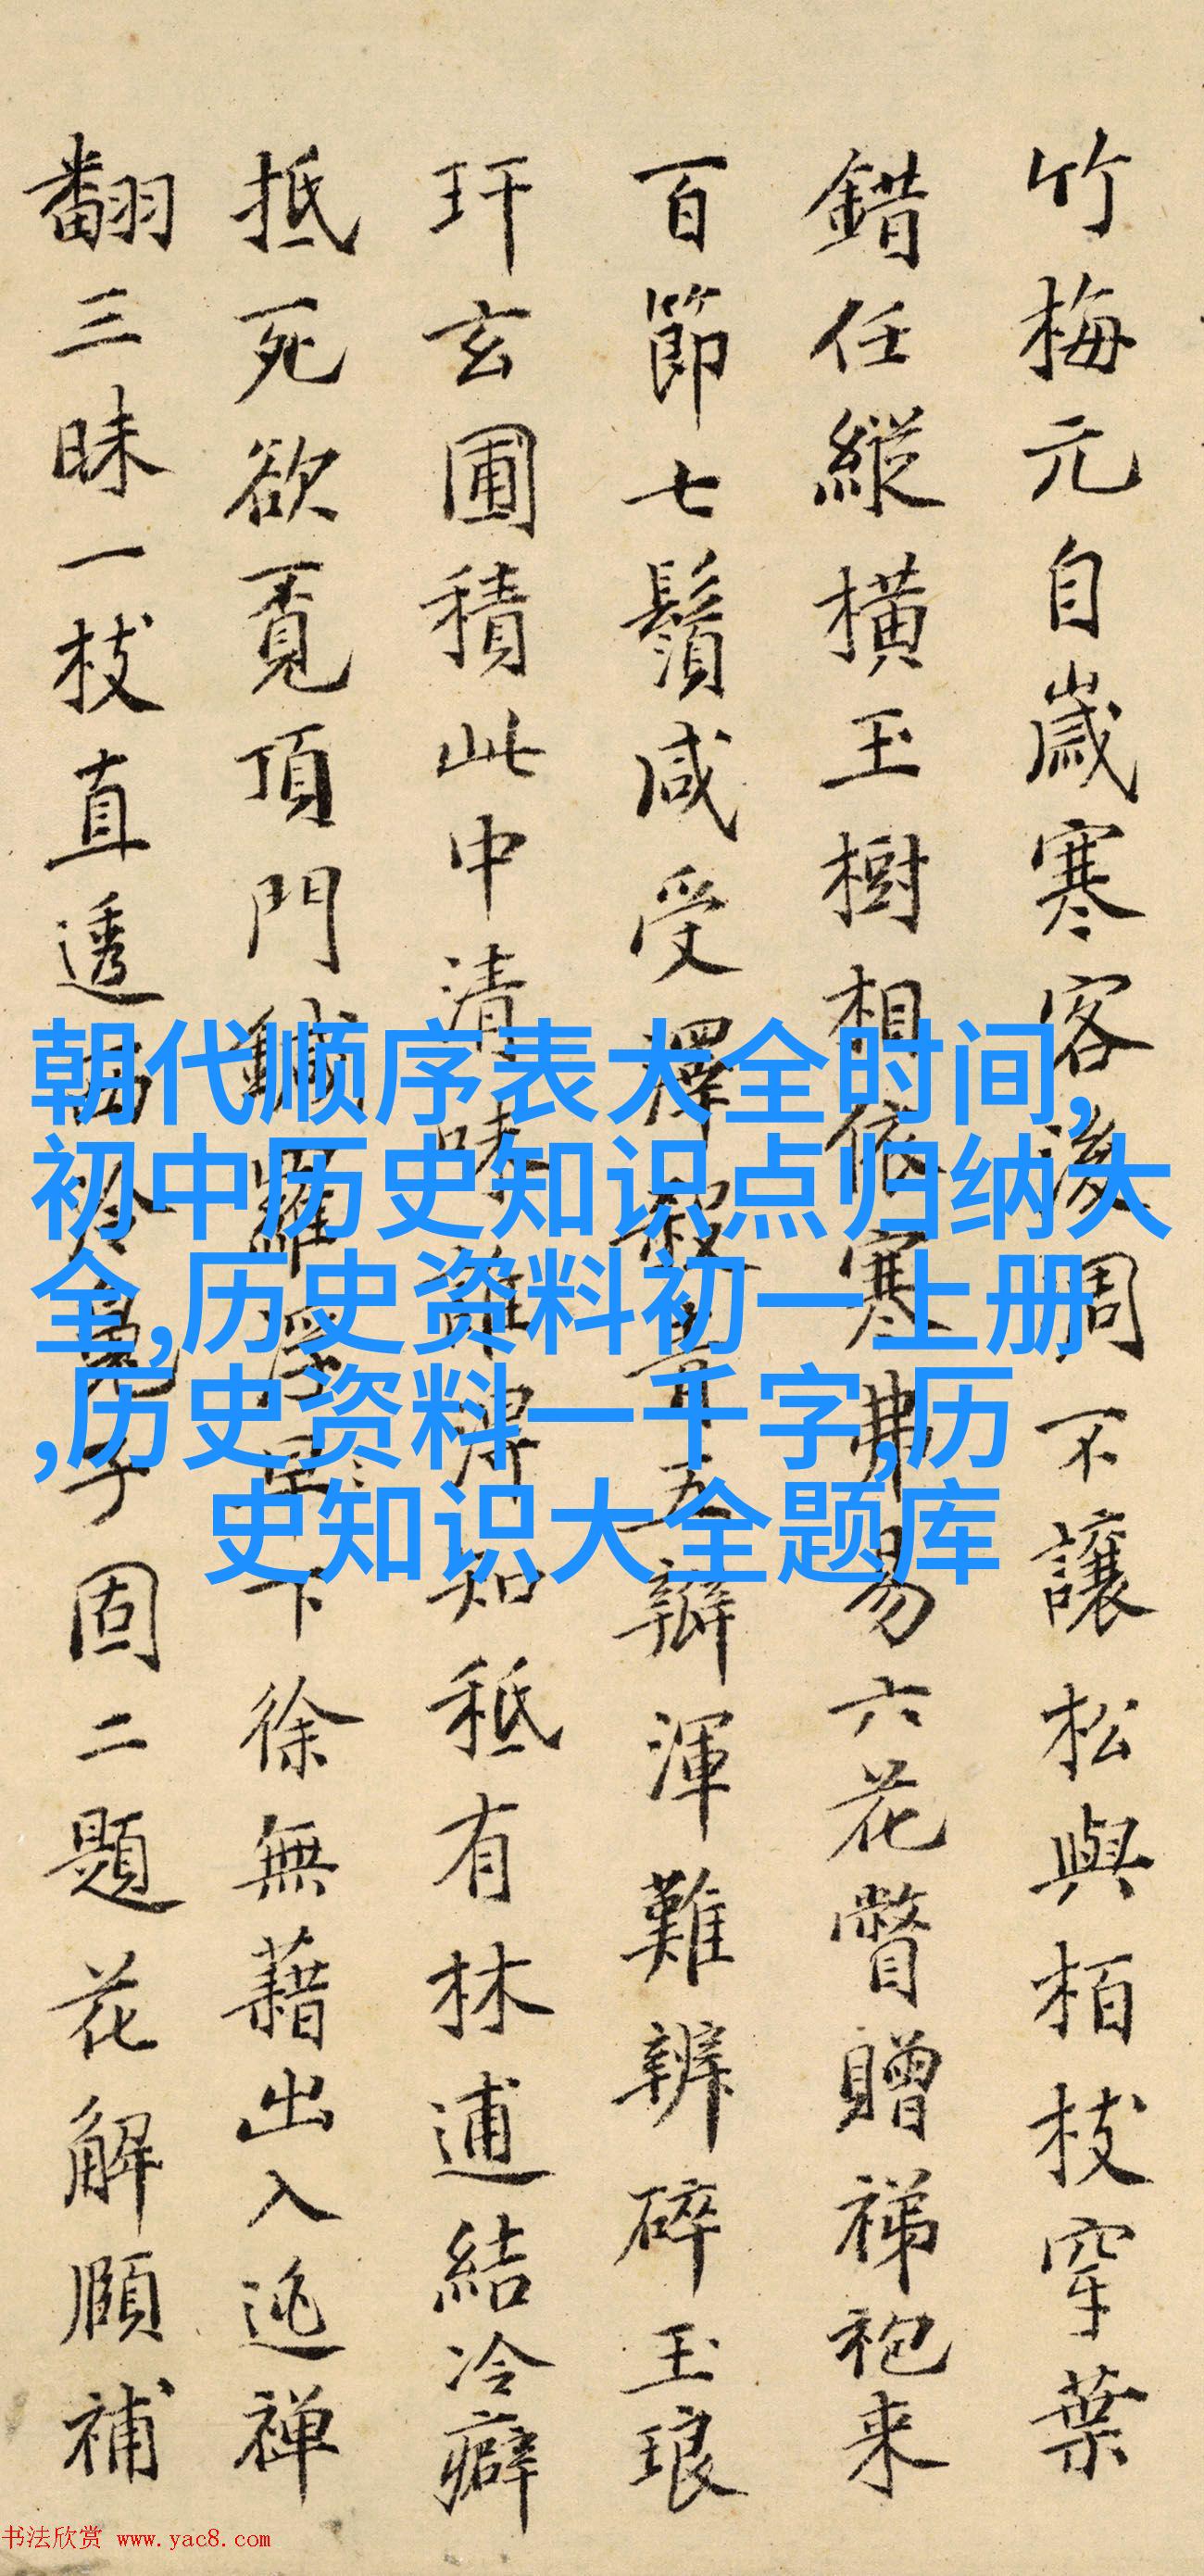 竹梅元自歲寒客後凋不讓松與栢枝穿葉
錯任縱橫玉樹相依寒弗易六花瞥贈祶袍来
百節七鬚咸受澤五瓣渾難辨碎玉琅
玕玄圃積此中清味得知秪有林逋結冷癖
抵死欲覔頂門鍼羅浮下徐無藉出入逃禅
翻三昧一枝直透子固二題花解頤補
朝代顺序表大全时间,
初中历史知识点归纳大
全,历史资料初一上册
,历史资料一千字,历
史知识大全题库
书法欣赏 www.yac8.com